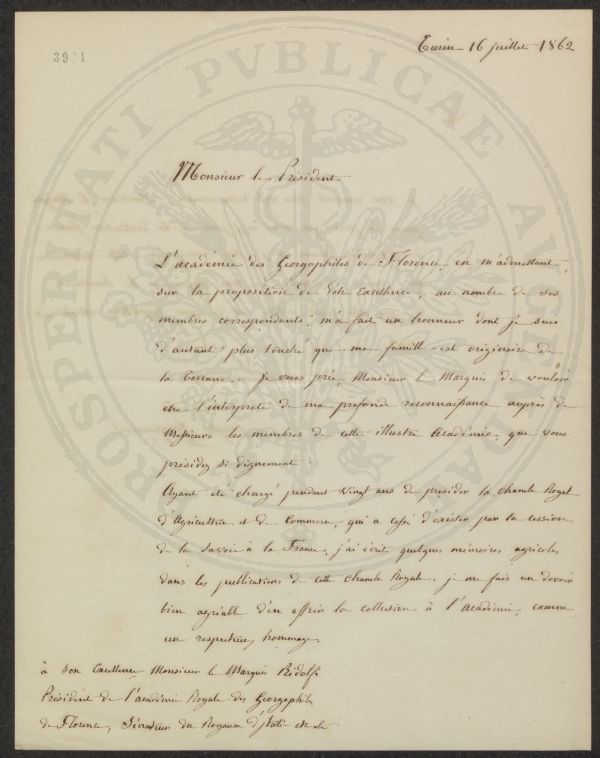 3901
Turin 16 juillet 1862
Monsieur le Président
L'académie des Georgophiles de Florence, en m'admettant,
sur la proposition de Votre Excellence, au nombre de ses
membres correspondants, m'a fait un honneur dont je suis
d'autant plus touché que ma famille est originaire de
la Toscane. je vous prie, Monsieur le Marquis de vouloir
être l'interprete de ma profonde reconnaissance auprès de
Messieurs les membres de cette illustre Académie, que vous
présidez si dignement.
Ayant été chargé pendant vingt ans de présider la chambre Royale
d'Agriculture et de Commerce, qui a cessé d'exister par la cession
de la Savoie à la France, j'ai écrit quelques mémoires agricoles
dans les publications de cette chambre Royale. je me fais un devoir
bien agréable d'en offrir la collection à l'Académie, comme
un respectueux hommage.
à Son Excellence Monsieur le Marquis Ridolfi
Président de l'académie Royale des Georgophiles
de Florence, Sénateur du Royaume d'Italie etc etc
PROSPERITATI PVBLICAE AVGENDAE